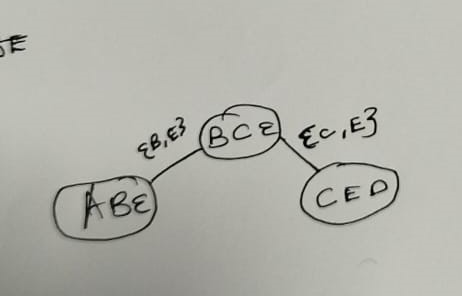 {B,E}
BCE
{C,E}
ABE
CED